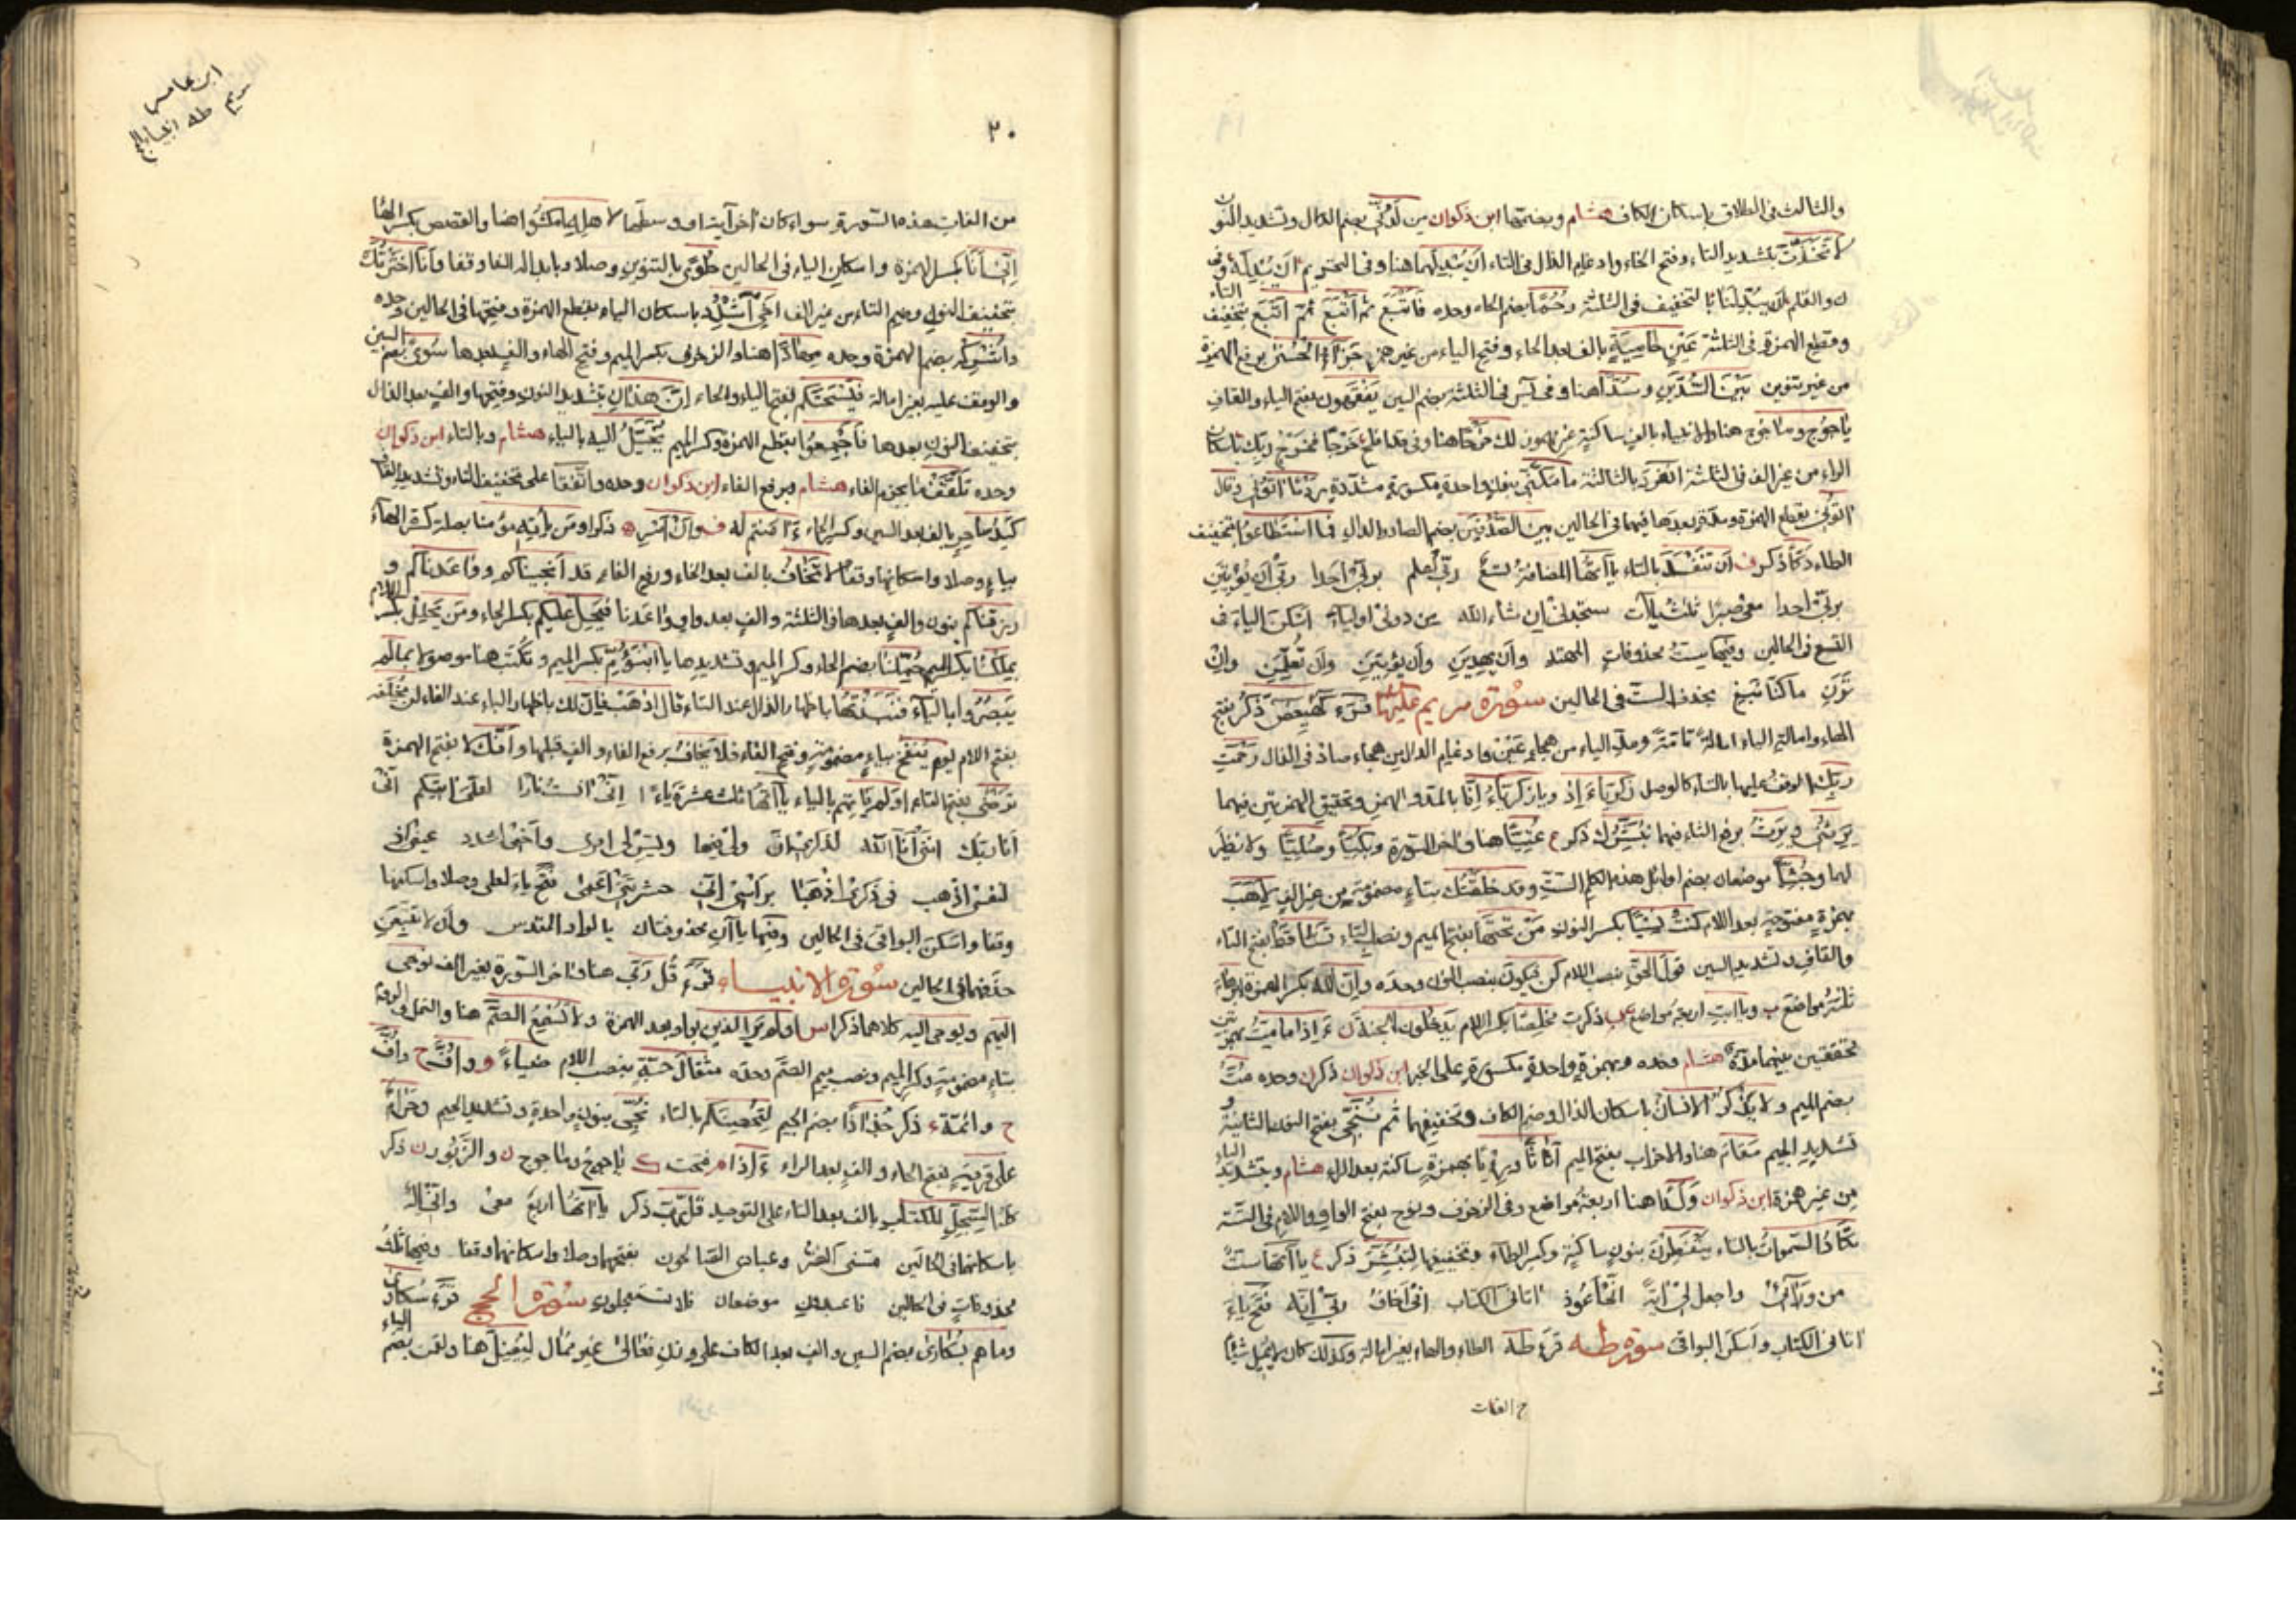 والثالث فى الطلاق باسكان الكاف هشام وبضمها ابن ذكوان من لدنى بضم الدال وتشديد النون
لاتخذت بتشديد التاء وفتح الخاء وادغام الذال فى التاء ان يبدلهما هنا وفى التحريم ان يبدله وفى
ن والقلم ان يبدلنا بالتخفيف فى الثلثة رحما بضم الحاء وحده فاتبع ثم اتبع ثم اتبع بتخفيف التاء
وقطع الهمزة فى الثلثة عين حامية بالف بعد الحاء وفتح الياء من غير همز جزاء الحسنى برفع الهمزة
من غير تنوين بين السدين وسدا هنا وفى يس فى الثلثة بضم السين يفقهون بفتح الياء والقاف
ياجوج وماجوج هنا والانبياء بالف ساكنة غير مهموز لك خرجا هنا وفى قد افلح خرجا فخرج ربك باسكان
الراء من غير الف فى الثلثة انفرد بالثالثة ما مكنى بنون واحدة مكسورة مشددة ردما اتونى وقال
اتونى بقطع الهمزة ومدة بعدها فيهما فى الحالين بين الصدفين بضم الصاد والدال فما اسطاعوا بتخفيف
الطاء دكا ذكر ف ان تنفد بالتاء ياآتها المضافة تسع ربى اعلم بربى احدا ربى ان يؤتين
بربى احدا معى صبرا ثلث ياآت ستجدنى ان شاء الله من دونى اولياء اسكن الياء فى
التسع فى الحالين وفيها ست محذوفات المهتد وان يهدين وان يؤتين وان تعلمن وان
ترن ما كنا نبغ بحذف الست فى الحالين سورة مريم عليها قرء كهيعص ذكر بفتح
الهاء وامالة الياء امالة تامة ومد الياء من هجاء عين وادغام الدال من هجاء صاد فى الذال رحمت
ربك الوقف عليها بالتاء كالوصل زكرياء اذ ويازكرياء انا بالمد والهمز وتحقيق الهمزتين فيهما
يرثنى ويرث برفع الثاء فيهما نبشرك ذكر ع عتيا هنا واخر السورة وبكيا وصليا ولا نظير
لها وجثيا موضعان بضم اوائل هذه الكلم الست وقد خلقتك بتاء مضمومة من غير الف لاهب
بهمزة مفتوحة بعد اللام كنت نسيا بكسر النون من تحتها بفتح الميم ونصب التاء تساقط بفتح التاء
والقاف وتشديد السين قول الحق بنصب اللام كن فيكون بنصب النون وحده وان الله بكسر الهمزة
ثلثة مواضع وياابت اربعة مواضع ذكرت مخلصا بكسر اللام يدخلون الجنة ءاذا ما مت بهمزتين
محققتين بينهما مدة هشام وحده وبهمزة واحدة مكسورة على الخبر ابن ذكوان ذكر ن وحده مت
بضم الميم ولا يذكر الانسان باسكان الذال وضم الكاف وتخفيفهما ثم ننجى بفتح النون الثانية و
تشديد الجيم مقاما هنا والاحزاب بفتح الميم اثاثا وريا بهمزة ساكنة بعد الراء هشام وبتشديد الياء
من غير همزة ابن ذكوان وولدا هنا اربعة مواضع وفى الزخرف ونوح بفتح الواو واللام فى الستة
تكاد السموات بالتاء ينفطرن بنون ساكنة وكسر الطاء وتخفيفها لتبشر ذكر ع ياآتها ست
من ورائى واجعل لى اية انى اعوذ اتانى الكتاب انى اخاف ربى انه فتح ياء
اتانى الكتاب واسكن البواقى سورة طه قرء طه الطاء والهاء بغير امالة وكذلك كان لا يميل شيئا
ابن عامر
مريم طه انبياء الحج
٢٠
من الفات هذه السورة سواء كان اخر آية او وسطها لاهله امكثوا هنا والقصص بكسر الهاء
انى انا بكسر الهمزة واسكان الياء فى الحالين طوى بالتنوين وصلا وبابداله الفا وقفا وانا اخترتك
بتخفيف النون وضم التاء من غير الف اخى اشدد باسكان الياء بقطع الهمزة وفتحها فى الحالين وحده
واشركه بضم الهمزة وحده مهادا هنا والزخرف بكسر الميم وفتح الهاء والف بعدها سوى بضم السين
والوقف عليه بغير امالة فيسحتكم بفتح الياء والحاء ان هذان بتشديد النون وفتحها والف بعد الذال
بتخفيف النون بعدها فاجمعوا بقطع الهمزة وكسر الميم يخيل اليه بالياء هشام وبالتاء ابن ذكوان
وحده تلقف ما بجزم الفاء هشام وبرفع الفاء ابن ذكوان وحده واتفقا على تخفيف التاء وتشديد القاف
كيد ساحر بالف بعد السين وكسر الحاء ءامنتم له ف وان اسر ه ذكرا ومن يأته مؤمنا بصلة كسرة الهاء
بياء وصلا واسكانها وقفا لا تخاف بالف بعد الخاء ورفع الفاء قد انجيناكم وواعدناكم و
رزقناكم بنون والف بعدها فى الثلثة والف بعد واو واعدنا فيحل عليكم بكسر الحاء ومن يحلل بكسر اللام
بملكنا بكسر الميم حملنا بضم الحاء وكسر الميم وتشديدها يا ابنؤم بكسر الميم وتكتب هنا موصولا بما لم
يبصروا بالياء فنبذتها باظهار الذال عند التاء قال اذهب فان لك باظهار الباء عند الفاء لن تخلفه
بفتح اللام يوم ينفخ بياء مضمومة وفتح الفاء فلا يخاف برفع الفاء والف قبلها وانك لا بفتح الهمزة
ترضى بفتح التاء اولم ياتهم بالياء ياآتها ثلث عشرة ياء انى انست نارا لعلى اتيكم انى
انا ربك اننى انا الله لذكرى ان ولى فيها ويسر لى امرى واخى اشدد عينى اذ
لنفسى اذهب فى ذكرى اذهبا براسى انى حشرتنى اعمى فتح ياء لعلى وصلا واسكنها
وقفا واسكن البواقى فى الحالين وفيها ياآن محذوفتان بالواد المقدس وان لا تتبعن
حذفهما فى الحالين سورة الانبياء قرء قل ربى هنا واخر السورة بغير الف نوحى
اليهم ويوحى اليه كلاهما ذكرا س اولم ير الذين بواو بعد الهمزة ولا تسمع الصم هنا والنمل والروم
بتاء مضمومة وكسر الميم ونصب ميم الصم وحده مثقال حبة بنصب اللام ضياء و واف ح واف
ح وائمة ء ذكر جذاذا بضم الجيم لتحصنكم بالتاء نجى بنون واحدة وتشديد الجيم وحرام
على قرية بفتح الحاء والف بعد الراء ءاذا م فتحت ك ياجوج وماجوج ن والزبور ن ذكر
كطى السجل للكتاب بالف بعد التاء على التوحيد قل رب ذكر ياآتها اربع معى وانى اله
باسكانها فى الحالين مسنى الضر وعبادى الصالحون بفتحهما وصلا واسكانهما وقفا وفيها ثلث
محذوفات فى الحالين فاعبدون موضعان فلا تستعجلون سورة الحج قرء سكارى
وما هم بسكارى بضم السين والف بعد الكاف على وزن فعالى غير ممال ليضل هنا ولقمن بضم الياء